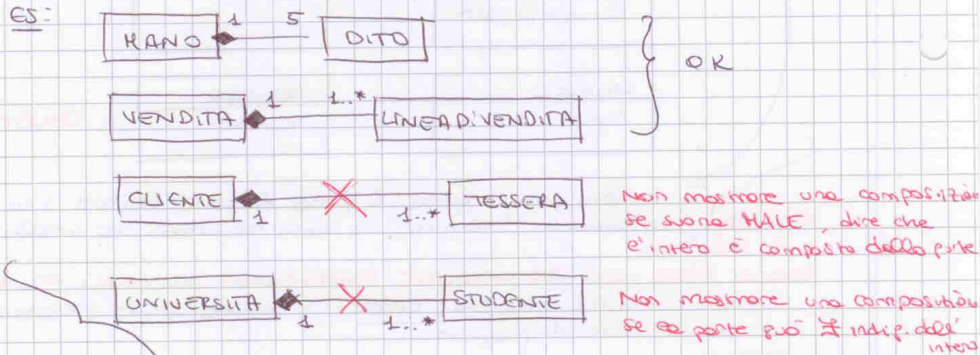 ES:
MANO 1 5 DITO
OK
VENDITA 1 1..* LINEA DI VENDITA
CLIENTE 1 1..* TESSERA
Non mostrare una composizion
se suona MALE, dire che
l'intero è composto dalla parte
UNIVERSITÀ 1 1..* STUDENTE
Non mostrare una composizion
se la parte può indip. dall'
intero